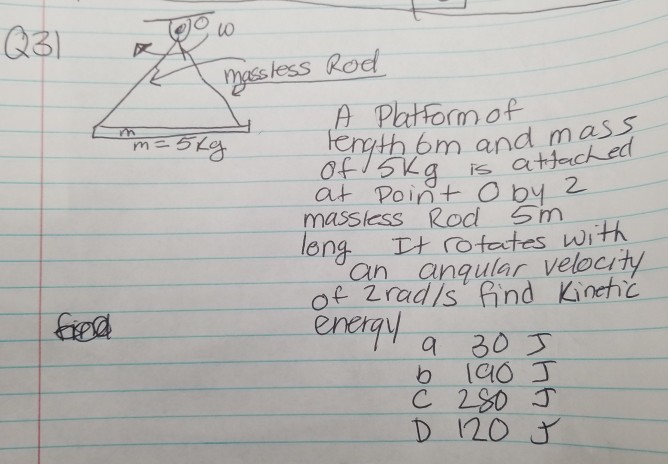 Q31
O
ω
massless Rod
m
m = 5kg
A Platform of
length 6m and mass
of 5kg is attached
at Point O by 2
massless Rod 5m
long It rotates with
an angular velocity
of 2rad/s find Kinetic
energy
a 30 J
b 190 J
C 280 J
D 120 J